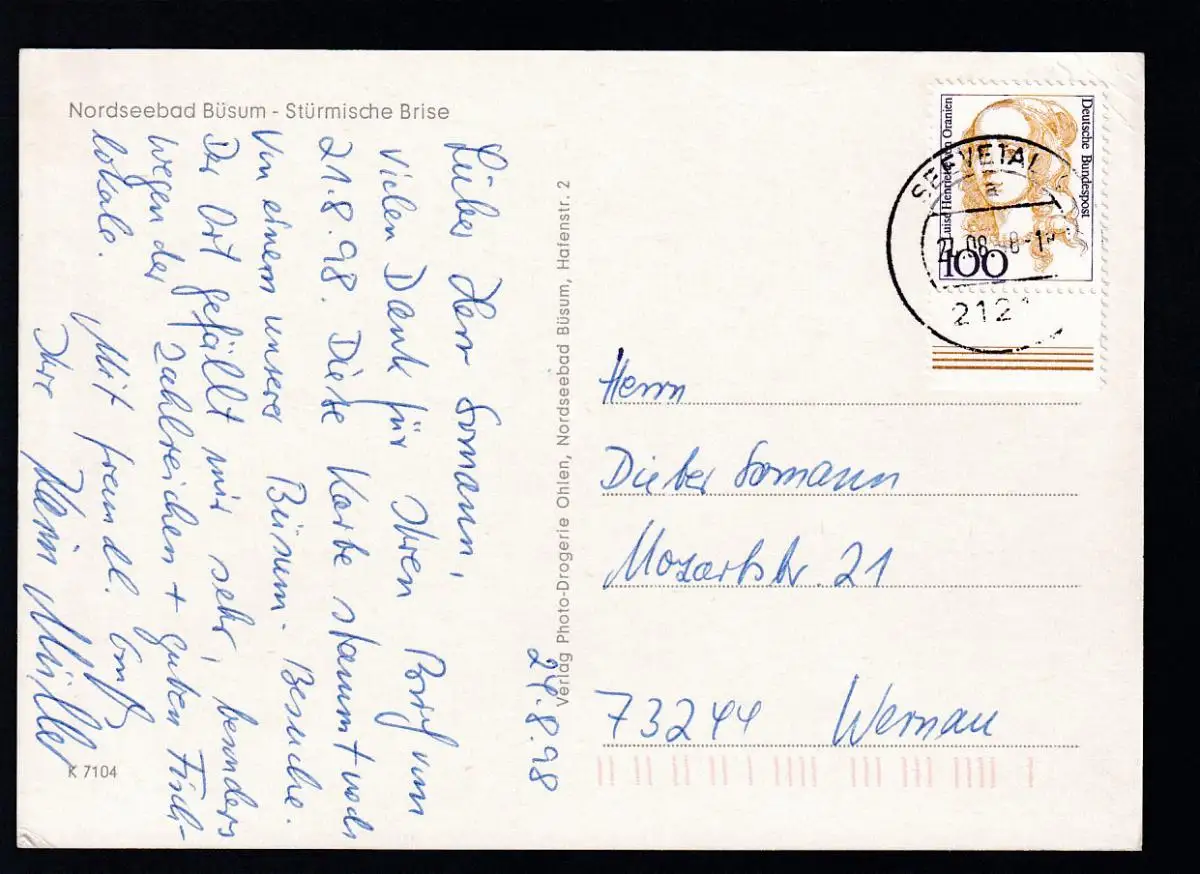 Nordseebad Büsum - Stürmische Brise
24.8.98
Lieber Herr Gomann,
vielen Dank für Ihren Brief vom
21.8.98. Diese Karte stammt noch
von einem unserer Büsum-Besuche.
Der Ort gefällt mir sehr, besonders
wegen der zahlreichen + guten Fisch-
lokale.
Mit freundl. Gruß
Ihre
Müller
K 7104
Verlag Photo-Drogerie Ohlen, Nordseebad Büsum, Hafenstr. 2
Deutsche Bundespost
Luise Henriette Oranien
100
SEEVETAL
2121
Herrn
Dieter Gomann
Mozartstr. 21
73244 Wernau